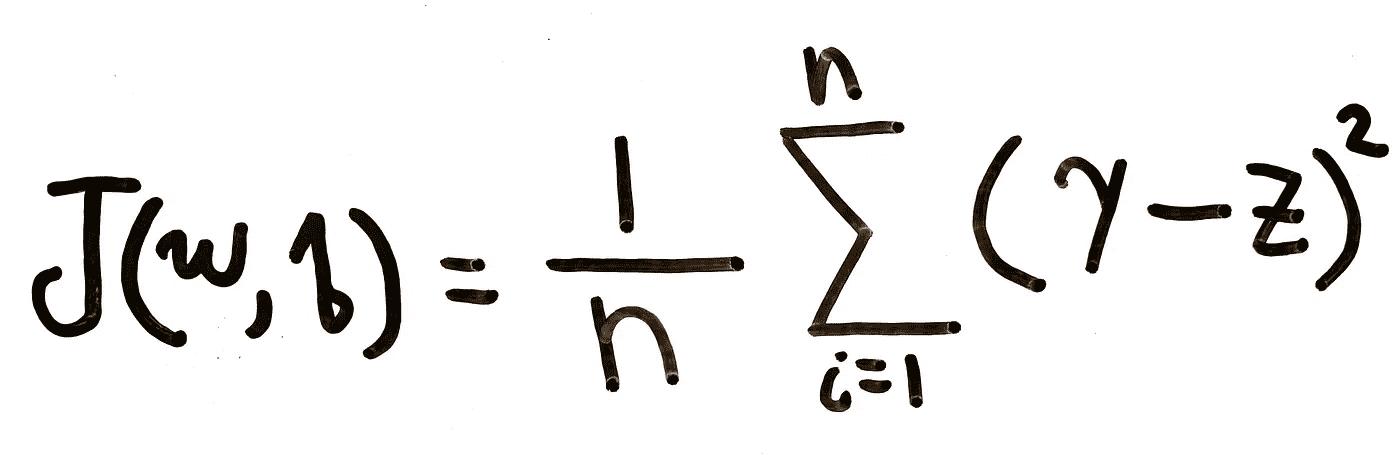 J(w,b) = \frac{1}{n} \sum_{i=1}^{n} (y - z)^2